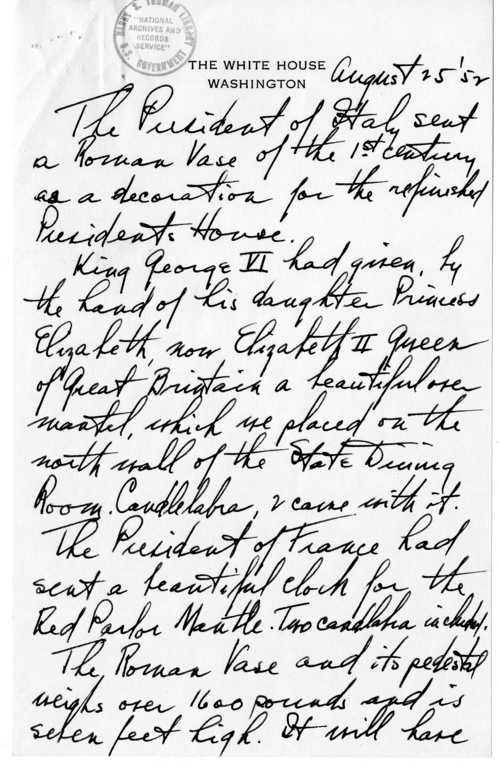 HARRY S. TRUMAN LIBRARY
"NATIONAL
ARCHIVES AND
RECORDS
SERVICE"
U.S. GOVERNMENT
THE WHITE HOUSE
WASHINGTON
August 25 '52
The President of Italy sent
a Roman Vase of the 1st century
as a decoration for the refinished
Presidents House.
King George VI had given, by
the hand of his daughter Princess
Elizabeth, now Elizabeth II Queen
of Great Brintain a beautiful over
mantel, which we placed on the
north wall of the State Dining
Room. Candlelabra, 2 came with it.
The President of France had
sent a beautiful clock for the
Red Parlor Mantle. Two candlabra included.
The Roman Vase and its pedestal
weighs over 1600 pounds and is
seven feet high. It will have